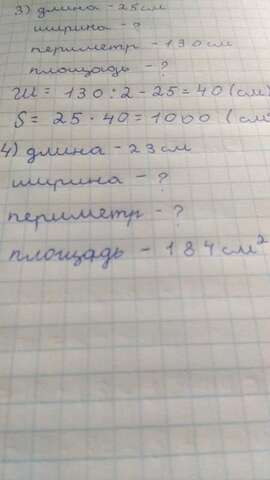 3) длина - 25см
ширина - ?
периметр - 130см
площадь - ?
Ш = 130 : 2 - 25 = 40 (см)
S = 25 · 40 = 1000 (см
4) длина - 23см
ширина - ?
периметр - ?
площадь - 184см²